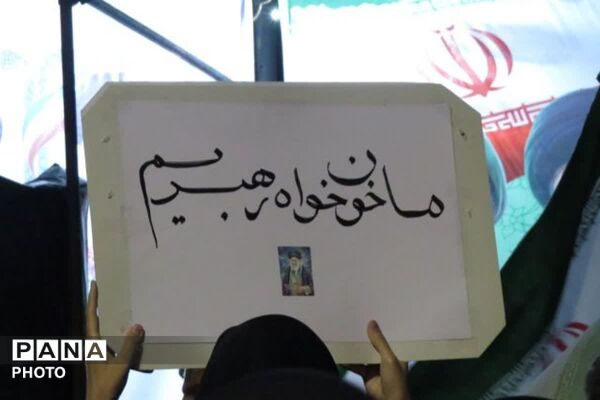 ما خونخواه رهبریم
PANA
PHOTO